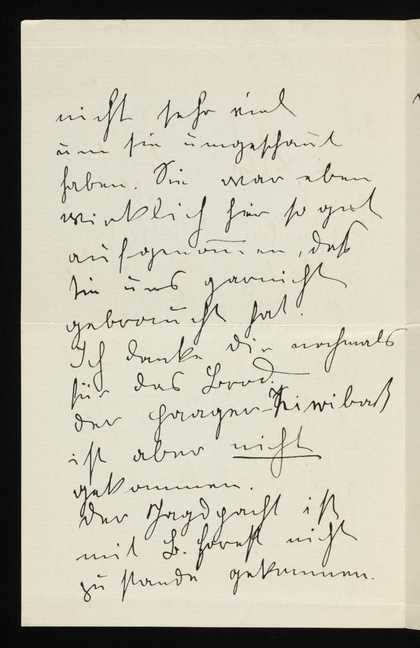 nicht sehr viel
um sie umgeschaut
haben. Sie war eben
wirklich hier so gut
aufgenom̅en, daß
sie uns garnicht
gebraucht hat.
Ich danke dir nochmals
für das Brod.
der Haager
ist aber nicht
gekommen.
der Jagdpacht ist
mit B. Forest nicht
zu stande gekommen.